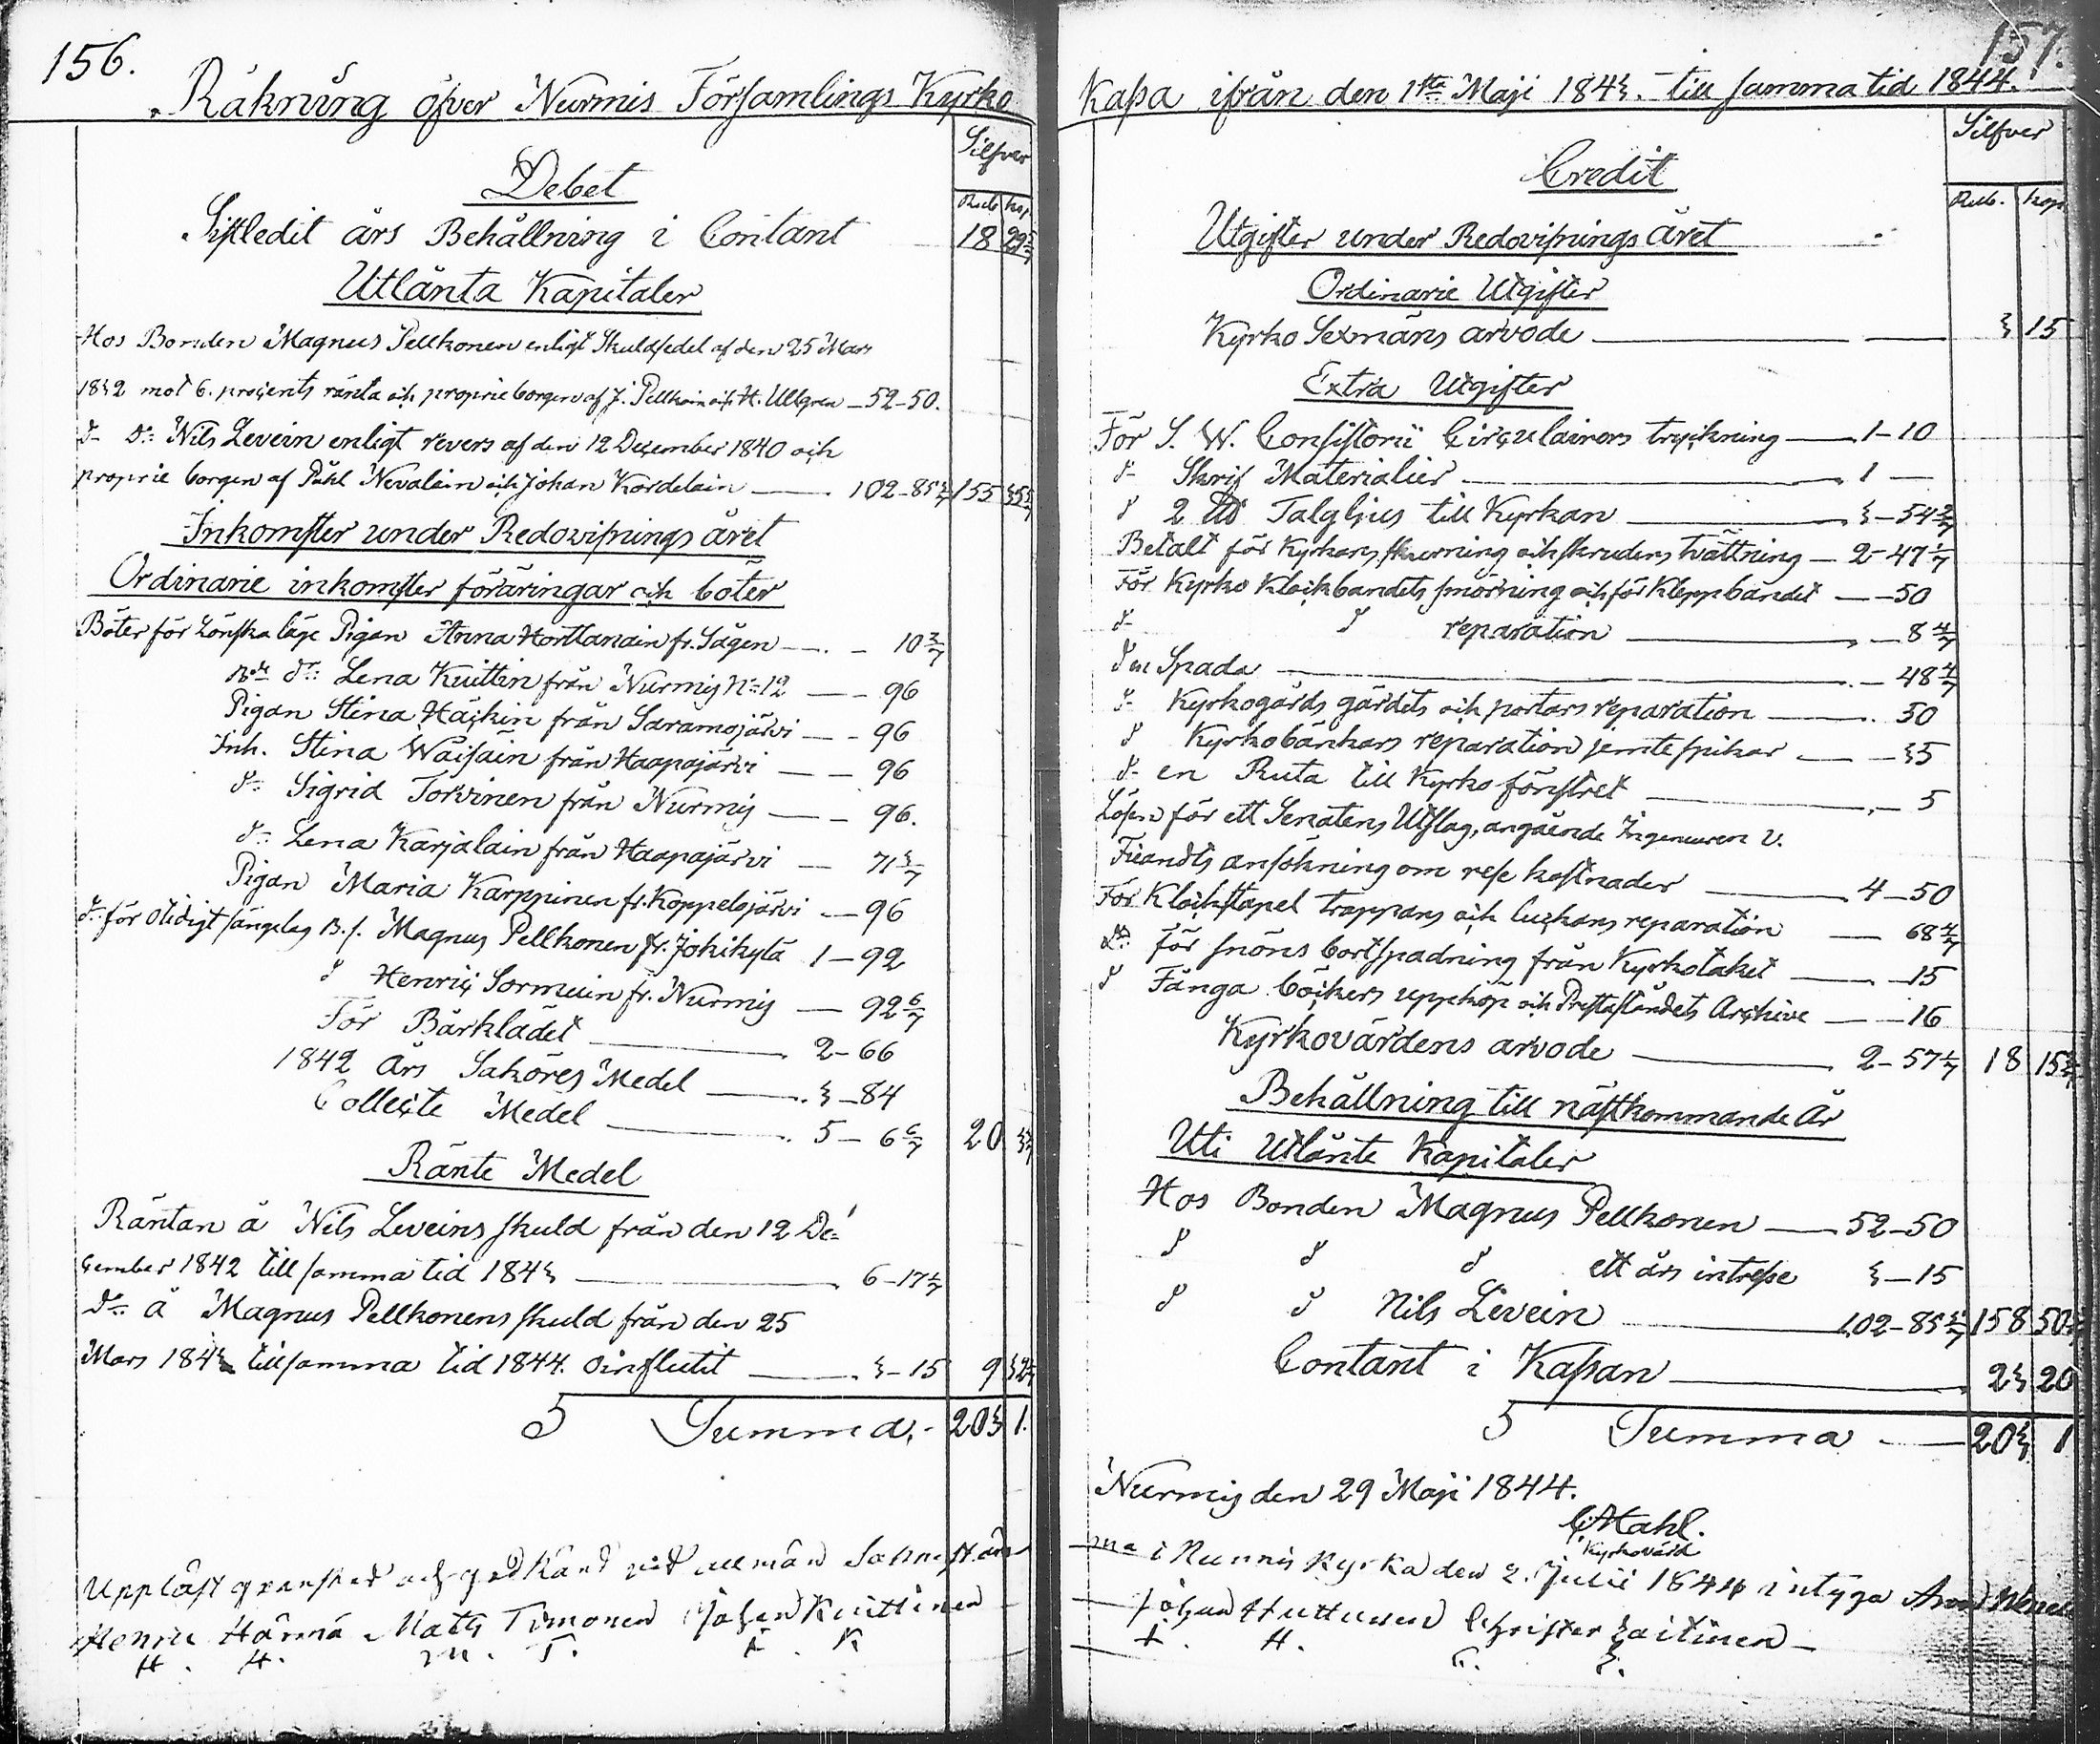 156.
Räkning öfver Nurmis Församlings Kyrko
Silfver
Debet
Rub kop
Sistledit års Behållning i Contant 18 29 5/7
Utlånta Kapitaler
Hos Bonden Magnus Pellkonen enligt Skuldsedel af den 25 Mars
1832 mot 6. procents ränta och proprie borgen af J. Pellkoin och H. Ullgren — 52—50.
d— Do: Nils Levein enligt revers af den 12 December 1840 och
proprie borgen af Påhl Nevalain och Johan Kordelain — 102—85 5/7 155 35 5/7
Inkomster under Redovisnings året
Ordinarie inkomster föräringar och böter
Böter för Lönskaläge Pigan Anna Hortlanain fr. Sågen — 10 2/7
do: Lena Kuittin från Nurmis No 12 — 96
Pigan Stina Häckin från Saramojärvi — 96
Inh. Stina Wäisäin från Haapajärvi — 96
do: Sigrid Torvinen från Nurmis — 96.
do: Lena Karjalain från Haapajärvi — 71 3/7
Pigan Maria Karppinen fr. Koppelojärvi — 96
do: för Otidigt sängelag B. s. Magnus Pellkonen fr. Jokikylä 1—92
d Henric Sormuin fr. Nurmis — 92 6/7
För Bårklädet — 2—66
1842 års Saköres Medel — 3—84
Collecte Medel — 5—6 6/7 20 3 3/7
Ränte Medel
Räntan å Nils Leveins skuld från den 12 De=
cember 1842 till samma tid 1843 — 6—17 1/7
do: å Magnus Pellkonens skuld från den 25
Mars 1843 till samma tid 1844. oinflutit — 3—15 9 32 1/7
S Summa.— 203 1.
Uppläst granskad och godkänd vid allmän Sockne stäm
Henric Härmä Matts Timonen Johan Kuittinen
H. H. M. T. I. K
157.
Kassa ifrån den 1sta Maji 1843. till samma tid 1844.
Silfver
Credit
Rub. kop
Utgifter under Redovisnings året
Ordinarie Utgifter
Kyrko Sexmäns arvode — 3 15
Extra Utgifter
För S. W. Consistorii Circulairers tryckning — 1—10
d— Skrif Materialier — 1 —
d 2 ℔ Talgljus till Kyrkan — 3—54 2/7
Betalt för Kyrkans skurning och skrudens tvättning — 2—47 1/7
För Kyrko Klockbandets smörning och för Kleppbandet — 50
d— d reparation — 8 4/7
d en Spada — 48 4/7
d— Kyrkogårds gärdets och portars reparation — 50
d Kyrkobänkars reparation jemte spikar — 35
d— en Ruta till Kyrko fönstret — 5
Lösen för ett Senatens Utslag, angående Ingenieuren v.
Fieandts ansökning om rese kostnader — 4—50
För Klockstapel trappans och luckans reparation — 68 4/7
do: för snöns bortspadning från Kyrkotaket — 15
d Fånga böckers uppköp och Prestaståndets Archive — 16
Kyrkovärdens arvode — 2—57 1/7 18 15 2/7
Behållning till nästkommande År
Uti Utlånte Kapitaler
Hos Bonden Magnus Pellkonen — 52—50
d d d ett års intresse 3—15
d d Nils Levein — 102—85 5/7 158 50 5/7
Contant i Kassan — 23 20
S Summa — 203 1
Nurmis den 29 Maji 1844.
C. Stahl.
Kyrkovärd
ma i Nurmis Kyrka den 2. Julii 1844 intyga
Johan Huttunen Christer Laitinen —
I. H. C. L.